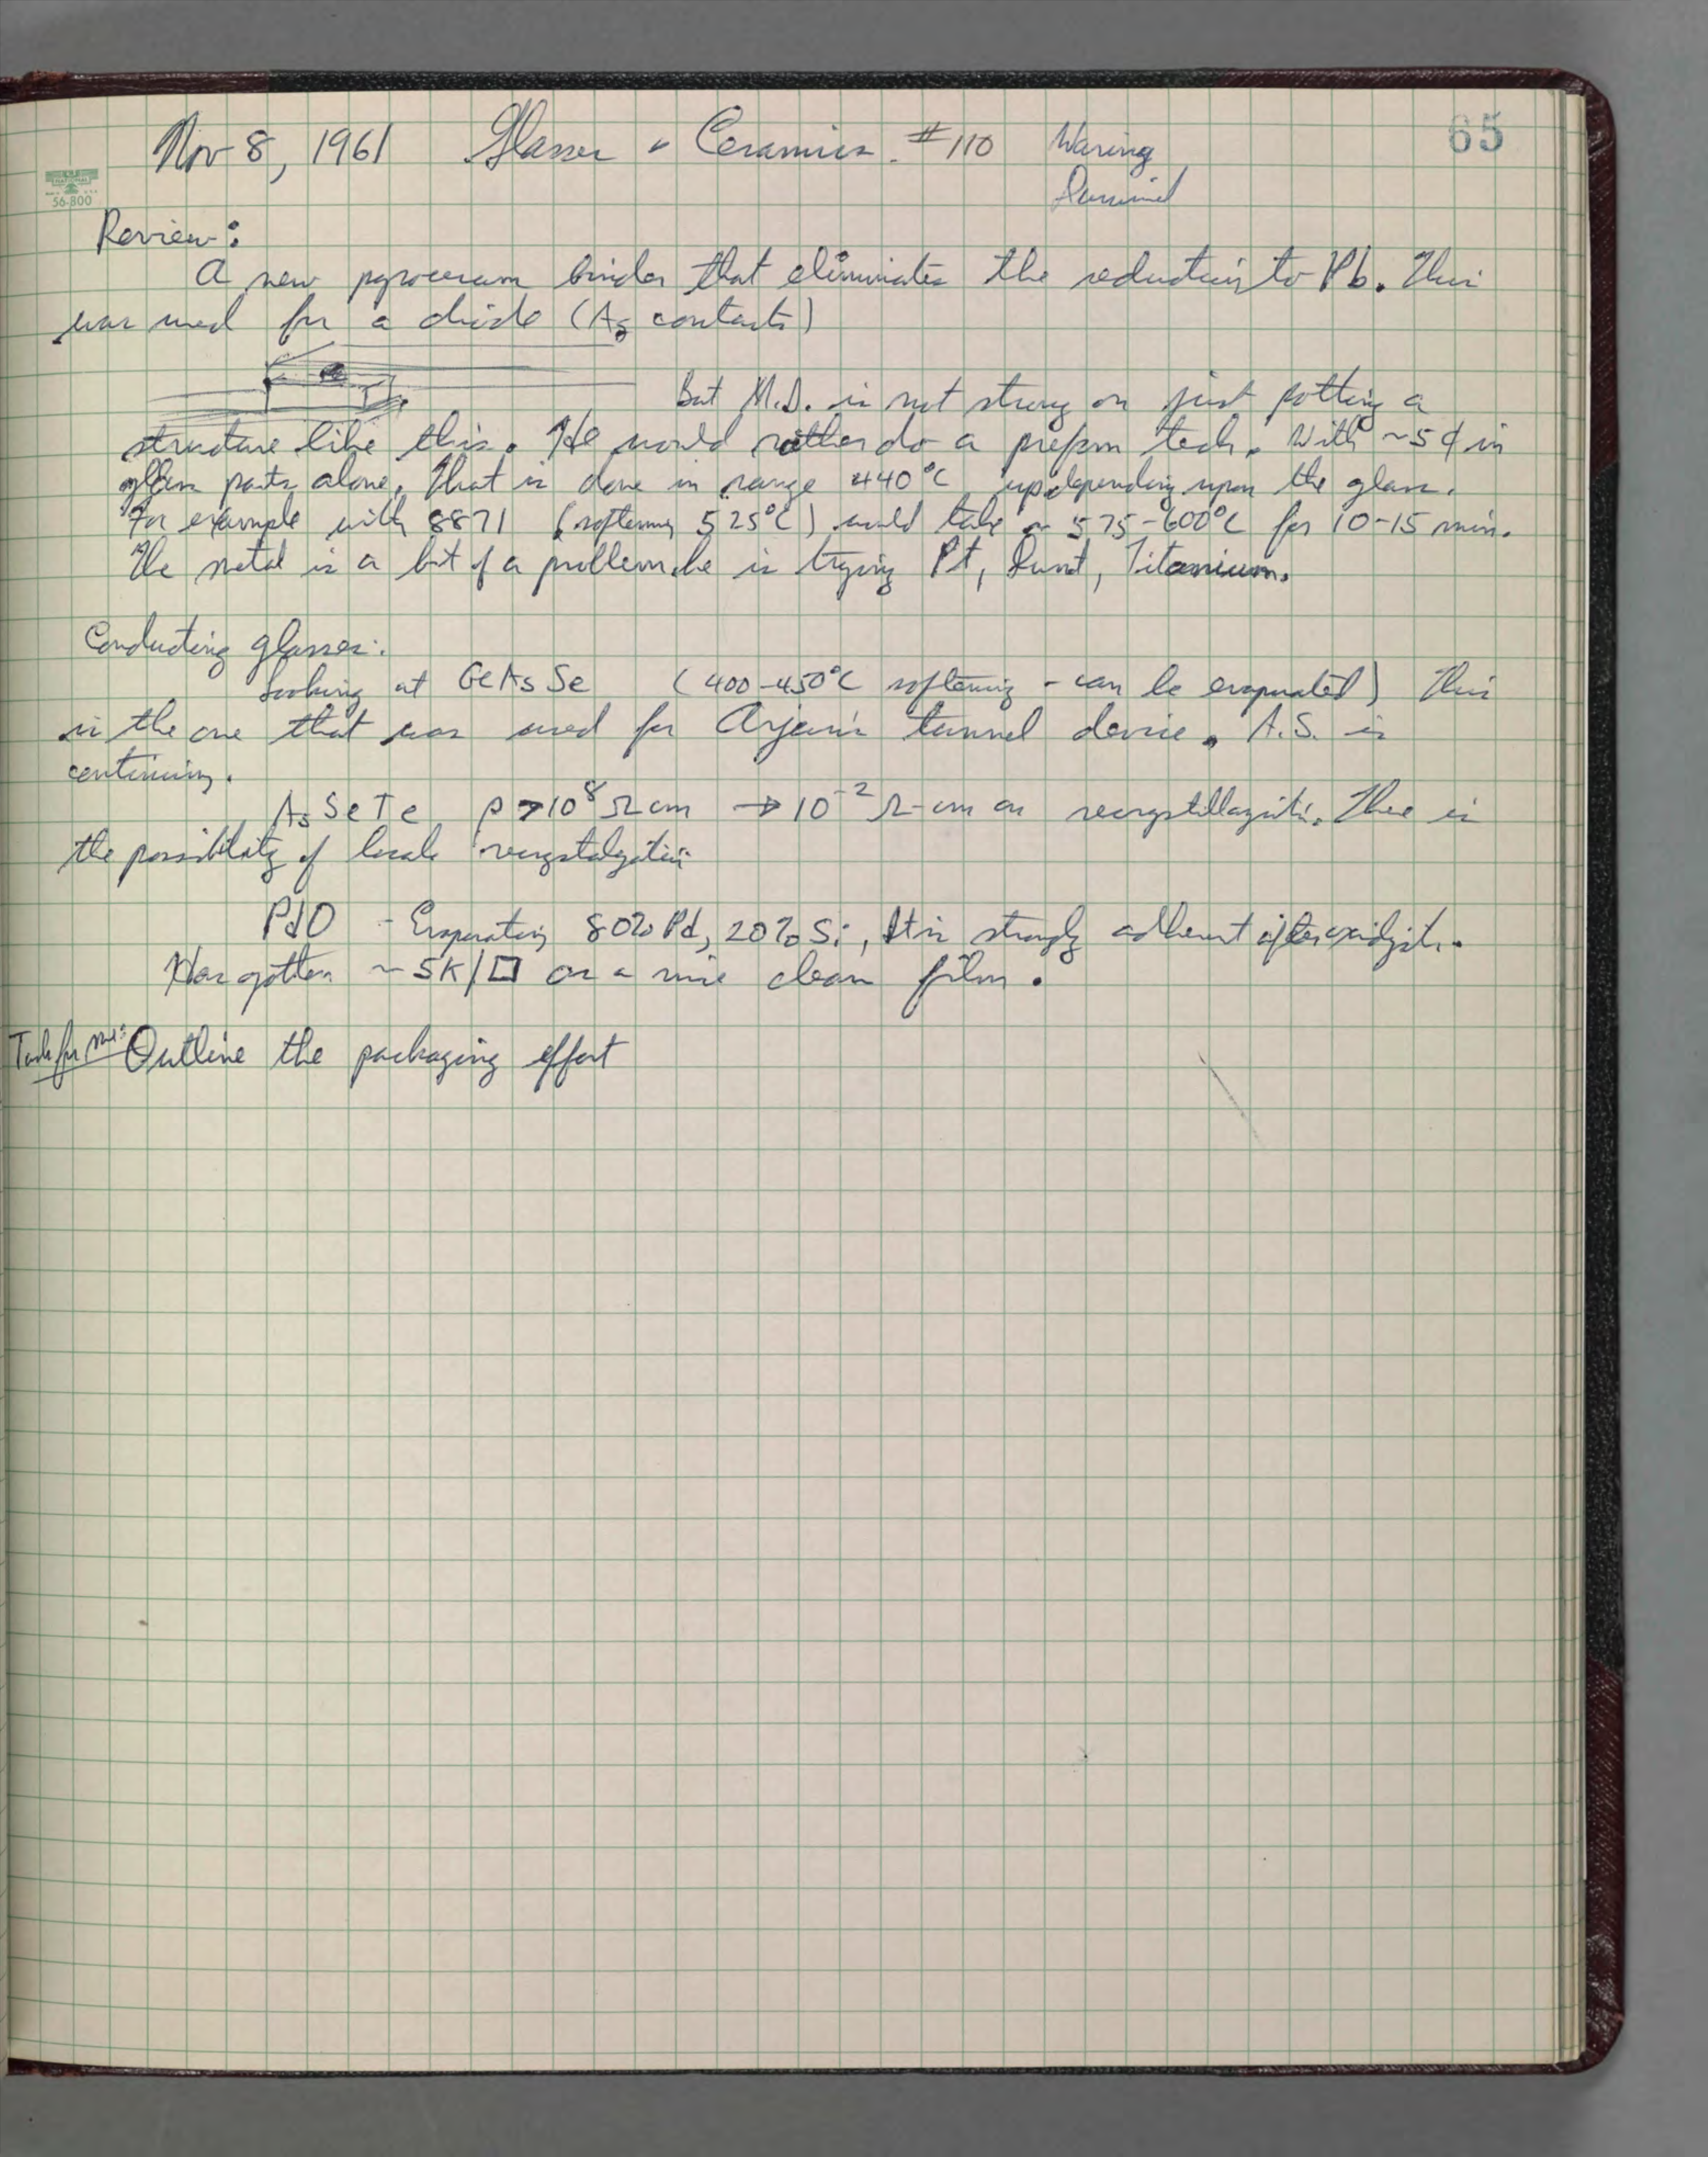 Nov 8, 1961 Glasses & Ceramics. #110 Waring
65
56-800
Review:
A new pyroceram binder that eliminates the reduction to Pb. This
was used for a diode (Ag contacts)
But M.D. is not strong on just potting a
structure like this. He would rather do a preform tech. With ~5¢ in
glass parts alone. That is done in range 440°C up depending upon the glass.
For example with 8871 (softening 525°C) would take ~ 575-600°C for 10-15 min.
The metal is a bit of a problem. he is trying Pt, Titanium.
Conducting glasses:
Looking at GeAsSe (400-450°C softening - can be evaporated) This
is the one that was used for Arjun's tunnel device. A.S. is
continuing.
AsSeTe ρ > 10⁸ Ω cm → 10⁻² Ω-cm on recrystallization. There is
the possibility of local recrystalization
PdO - Evaporating 80% Pd, 20% Si, It is strongly adherent after oxidation.
Has gotten ~5K/□ on a nice clean film.
Task for me: Outline the packaging effort